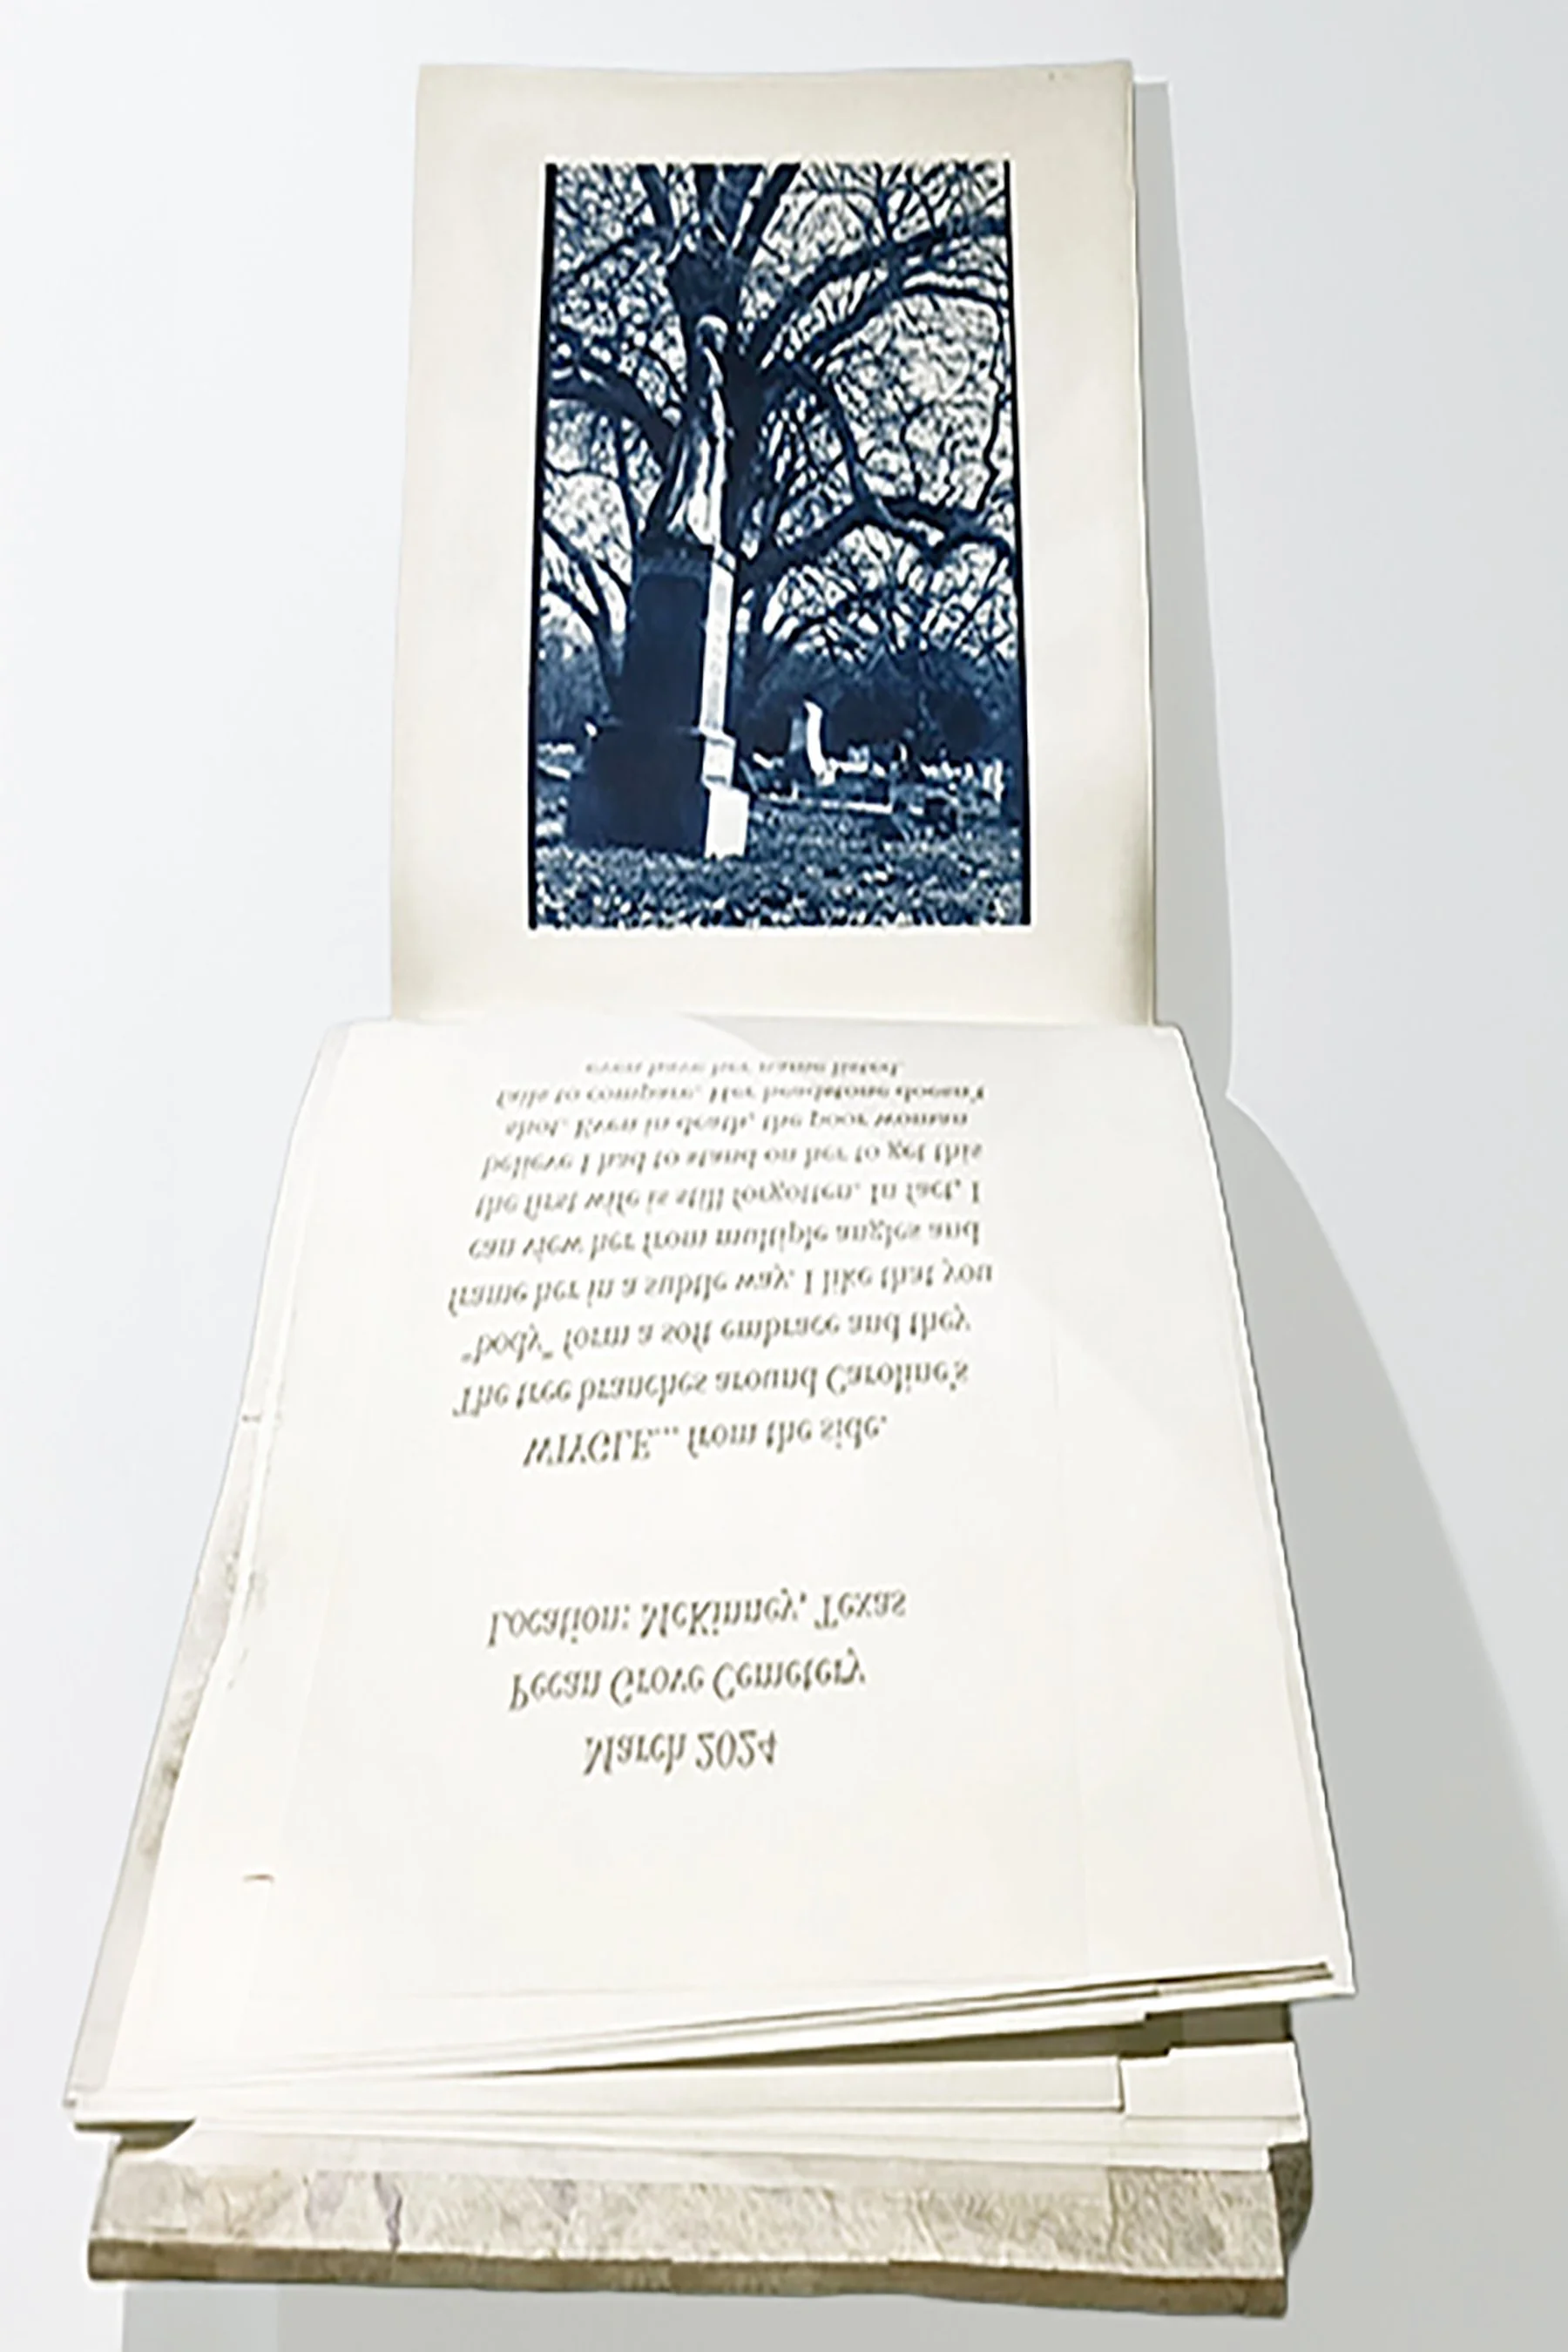 March 2024
Pecan Grove Cemetery
Location: McKinney, Texas
WIYGLE... from the side.
The tree branches around Caroline's
"body" form a soft embrace and they
frame her in a subtle way. I like that you
can view her from multiple angles and
the first wife is still forgotten. In fact, I
believe I had to stand on her to get this
shot. Even in death, the poor woman
fails to compare. Her headstone doesn't
even have her name listed.